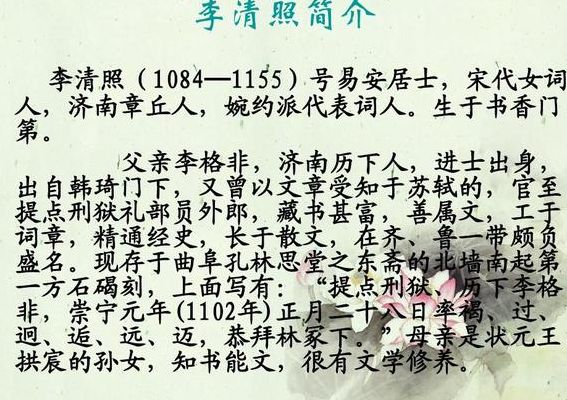 李清照简介
李清照（1084—1155）号易安居士，宋代女词
人，济南章丘人，婉约派代表词人。生于书香门
第。
父亲李格非，济南历下人，进士出身，
出自韩琦门下，又曾以文章受知于苏轼的，官至
提点刑狱礼部员外郎，藏书甚富，善属文，工于
词章，精通经史，长于散文，在齐、鲁一带颇负
盛名。现存于曲阜孔林思堂之东斋的北墙南起第
一方石碣刻，上面写有：“提点刑狱、历下李格
非，崇宁元年(1102年)正月二十八日率褐、过、
迥、逅、远、迈，恭拜林冢下。”母亲是状元王
拱宸的孙女，知书能文，很有文学修养。